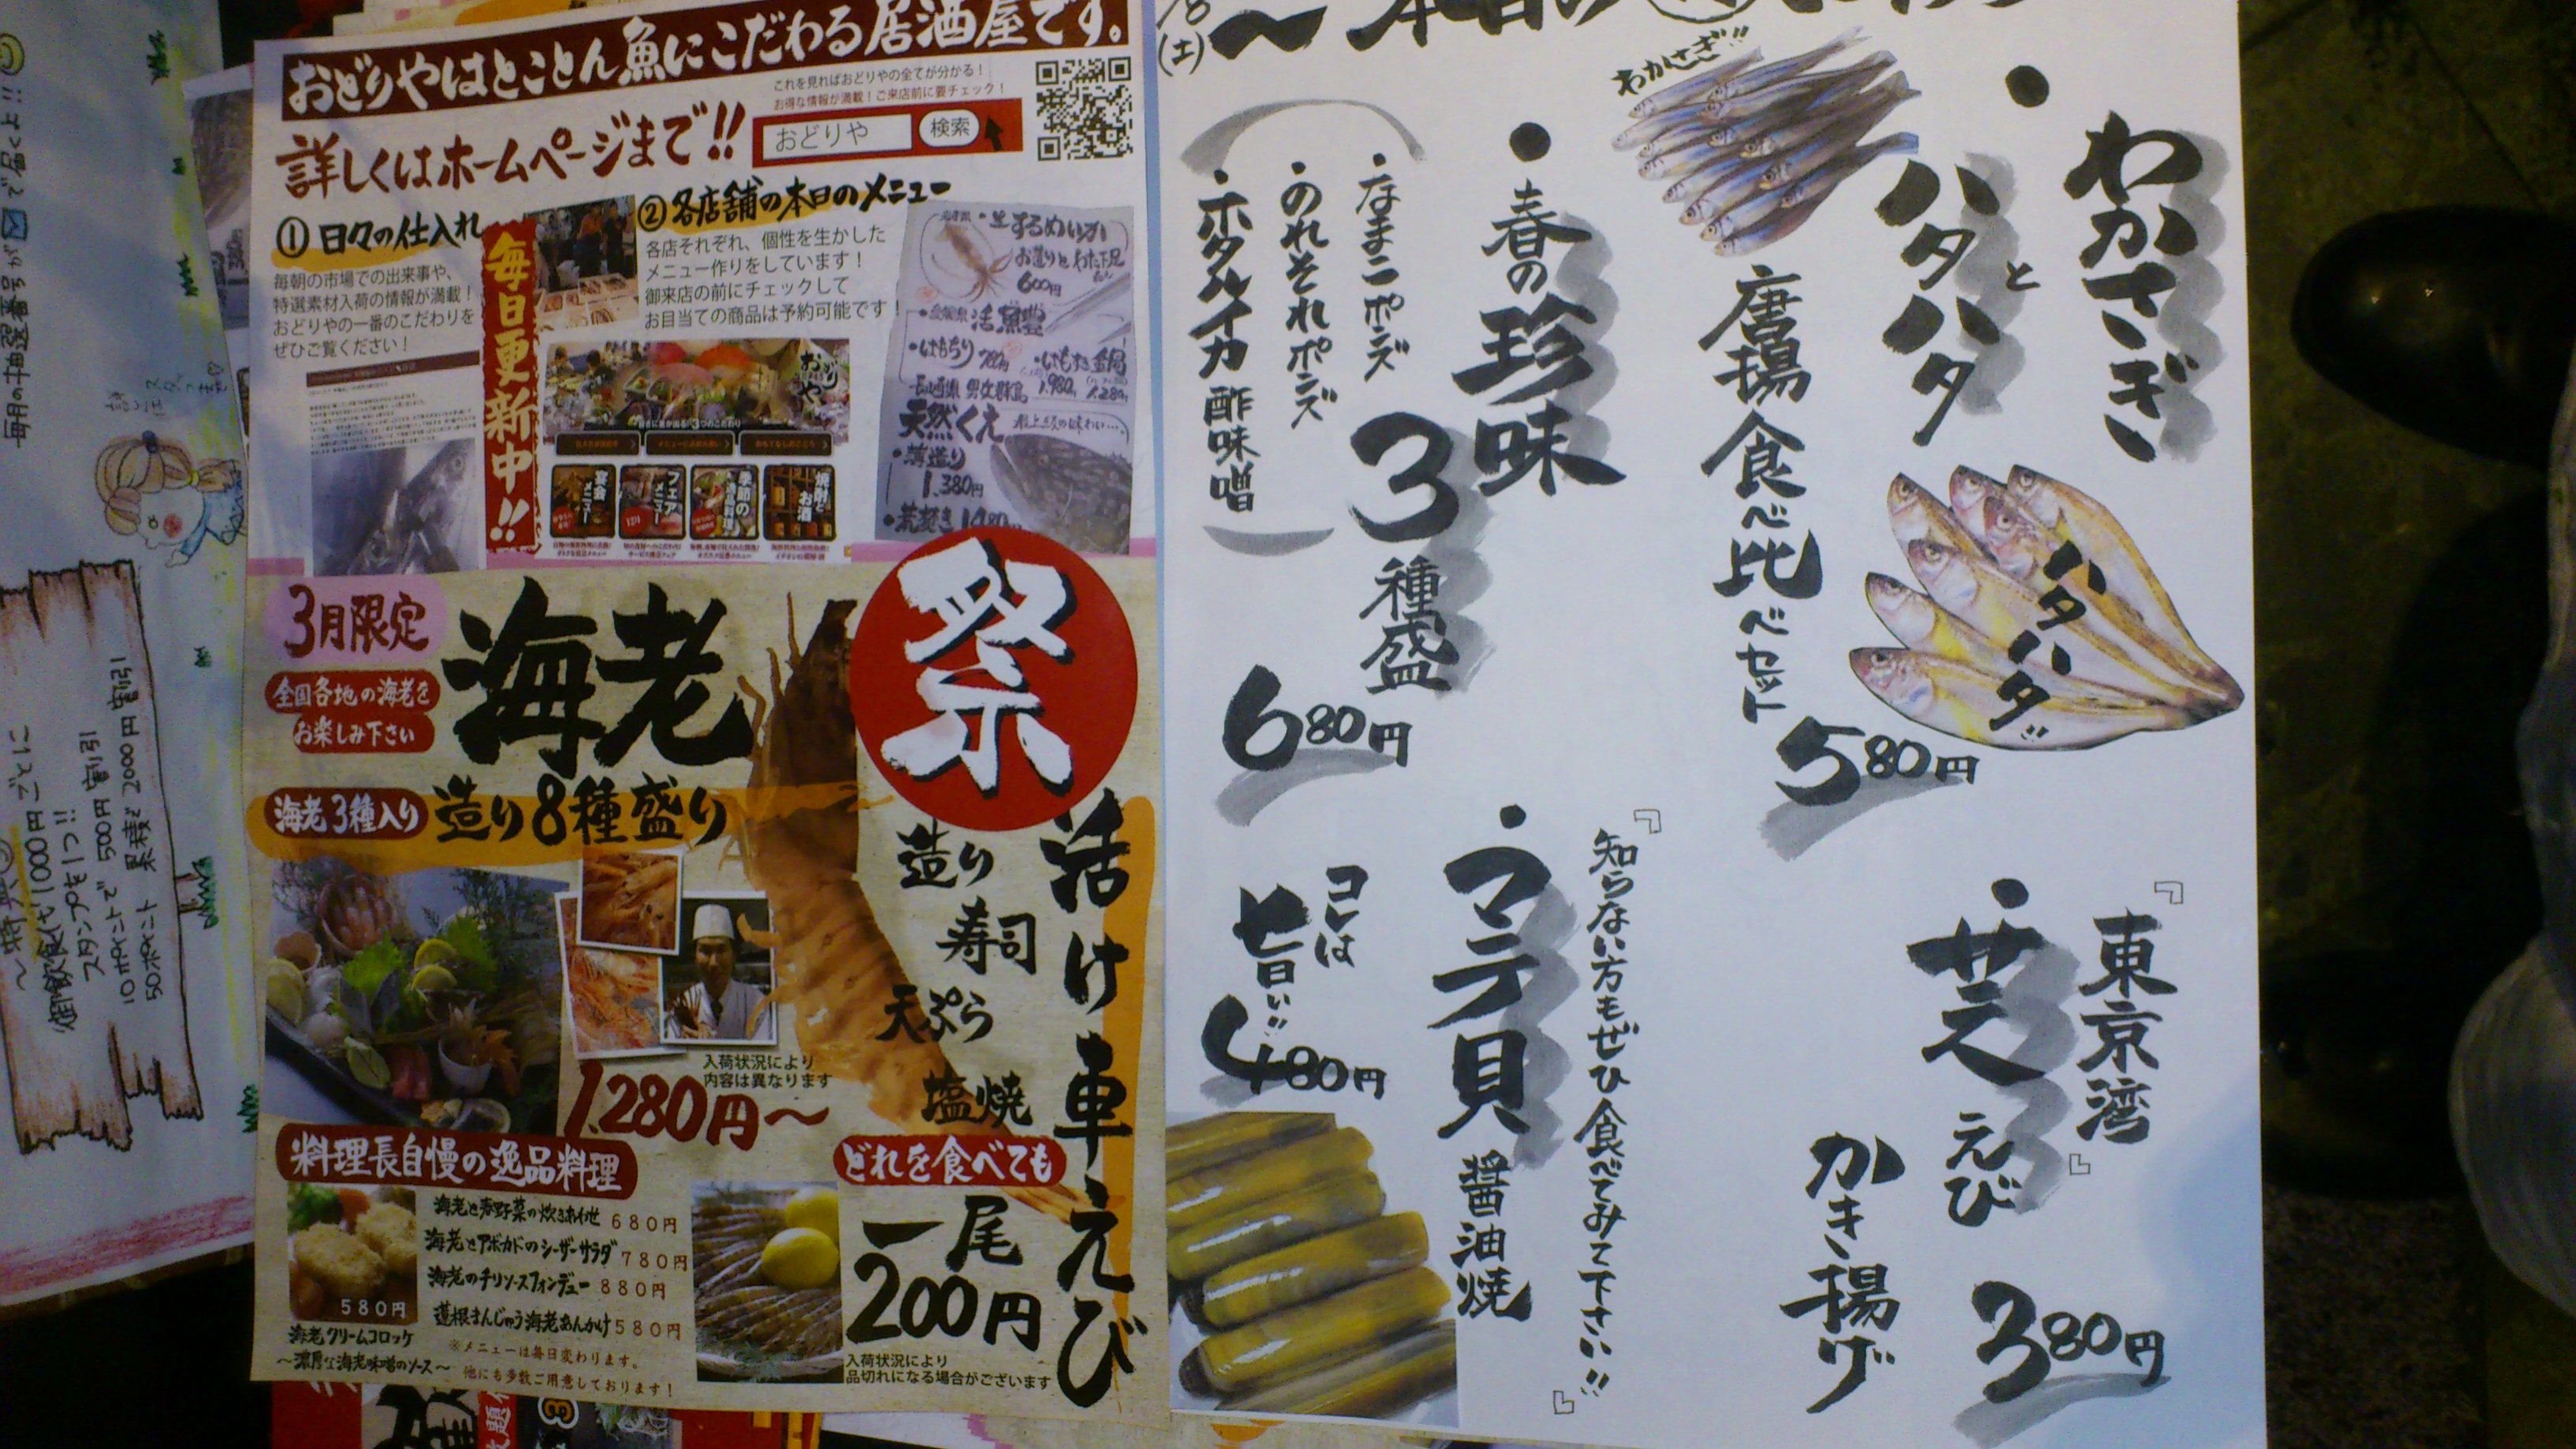 おどりやはとことん魚にこだわる居酒屋です。
詳しくはホームページまで!!
これを見ればおどりやの全てが分かる！
お得な情報が満載！ご来店前に要チェック！
おどりや
検索
①日々の仕入れ
毎朝の市場での出来事や、
特選素材入荷の情報が満載！
おどりやの一番のこだわりを
ぜひご覧ください！
毎日更新中!!
②各店舗の本日のメニュー
各店それぞれ、個性を生かした
メニュー作りをしています！
御来店の前にチェックして
お目当ての商品は予約可能です！
・生するめいか
お造りと
600円
活
長崎県 男女群島
天然くえ
・薄造り
1,380円
・荒炊き
おどりや
宴会メニュー
フェアメニュー
季節の
焼酎とお酒
3月限定
全国各地の海老を
お楽しみ下さい
海老
祭
海老3種入り
造り8種盛り
1,280円〜
入荷状況により
内容は異なります
活け車えび
造り
寿司
天ぷら
塩焼
どれを食べても
一尾
200円
入荷状況により
品切れになる場合がございます
料理長自慢の逸品料理
580円
海老クリームコロッケ
〜濃厚な海老味噌のソース〜
海老と春野菜の炊きあわせ 680円
海老とアボカドのシーザーサラダ 780円
海老のチリソースフォンデュー 880円
蓮根まんじゅう海老あんかけ 580円
※メニューは毎日変わります。
他にも多数ご用意しております！
(土)
・わかさぎ
と
ハタハタ
唐揚食べ比べセット
580円
わかさぎ!!
ハタハタ!!
・春の珍味
3種盛
なまこポンズ
・のれそれポンズ
・ホタルイカ酢味噌
680円
『東京湾』
・芝えび
かき揚げ
380円
『知らない方もぜひ食べてみて下さい!!』
・マテ貝
醤油焼
コレは
旨い!!
480円
毎月の抽選番号が
で届くよ!!
御飲食代1000円ごとに
スタンプを1つ!!
10ポイントで500円割引
50ポイント 累積で2000円割引